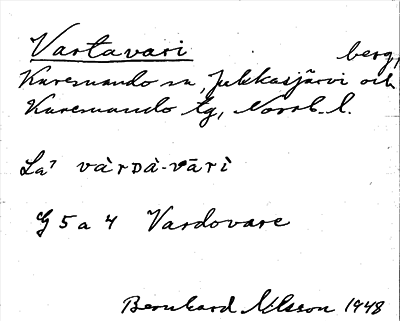 Vartavari berg,
Karesuando sn, Jukkasjärvi och
Karesuando tg, Norrb. l.
La' và̀rᴅà-vāri̇̀
G 5 a 4 Vardovare
Bernhard Nilsson 1948